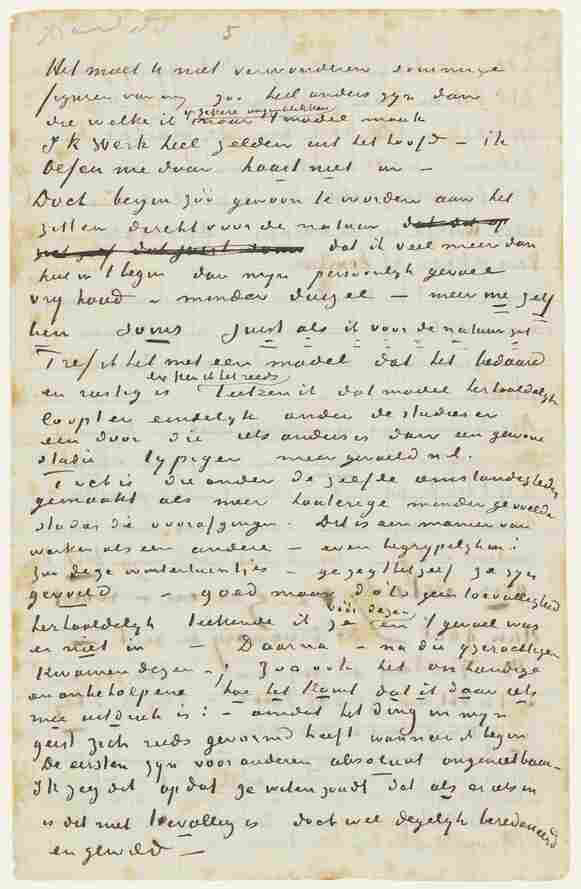 5
Het moet U niet verwonderen sommige
figuren van my zoo heel anders zyn dan
die welke ik op zekere oogenblikken naar 't model maak
Ik werk heel zelden uit het hoofd – ik
oefen me daar haast niet in –
Doch begin zóó gewoon te worden aan het
zitten direkt voor de natuur
dat ik veel meer dan
toen ik 't begin dan myn persoonlyk gevoel
vry houd – minder duizel – & meer me zelf
ben soms juist als ik voor de natuur zit
Tref ik het met een model dat het bedaard
en rustig is en ken ik het reeds teeken ik dat model herhaaldelyk
loopt er eindelyk onder de studies er
een door die iets anders is dan een gewone
studie typiger meer gevoeld n.l.
Toch is die onder dezelfde omstandigheden
gemaakt als meer houterige minder gevoelde
studies die voorafgingen. Dit is een manier van
werken als een andere – even begrypelyk
Zoo deze wintertuintjes – ge zegt het zelf ze zyn
gevoeld – goed maar dat is geen toevalligheid
herhaaldelyk teekende ik ze vóór dezen en 't gevoel was
er niet in – Daarna – na die yzerachtigen
kwamen dezen – Zoo ook het onhandige
en onbeholpene hoe het komt dat ik daar iets
mee uitdruk is: – omdat het ding in myn
geest zich reeds gevormd heeft wanneer ik begin
De eersten zyn voor anderen absoluut ongenietbaar –
Ik zeg dit opdat ge weten zoudt dat als er iets in
is dit niet toevallig is doch wel degelyk beredeneerd
en gewild –